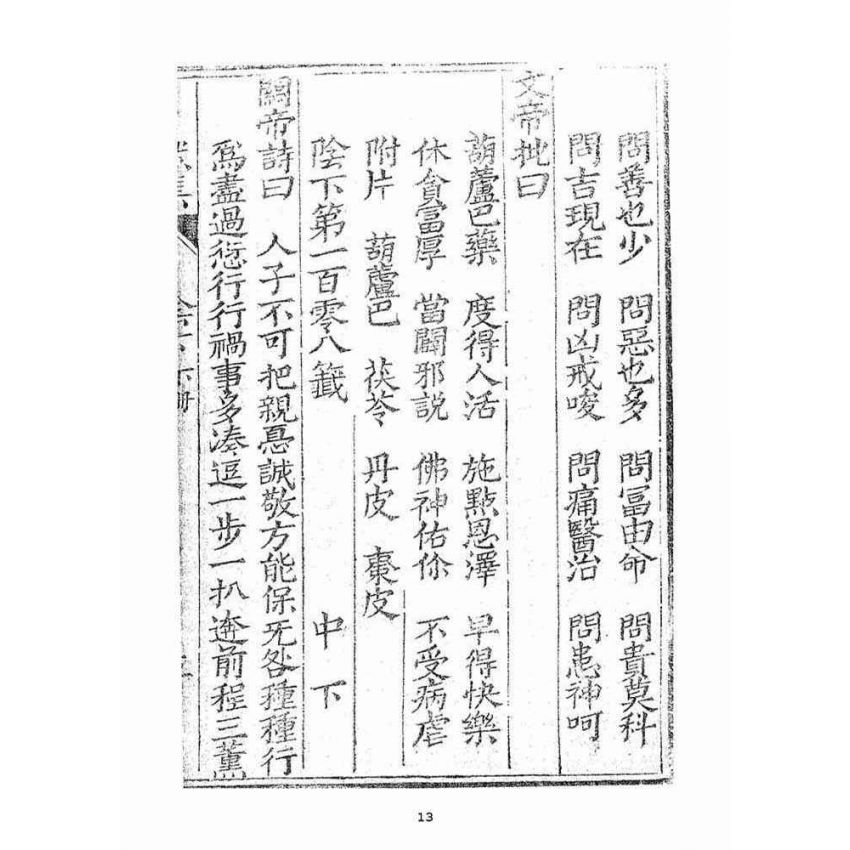 問善也少 問惡也多 問冨由命 問貴莫科
問吉現在 問凶戒唆 問痛醫治 問患神呵
文帝批曰
葫蘆巴藥 度得人活 施㸃恩澤 早得快樂
休貪富厚 當闢邪說 佛神佑你 不受病虐
附片 葫蘆巴 茯苓 丹皮 棗皮
陰下第一百零八籤 中下
關帝詩曰 人子不可把親忘誠敬方能保无咎種種行
為盡過愆行行禍事多湊逗一步一扒遊前程三薰
13